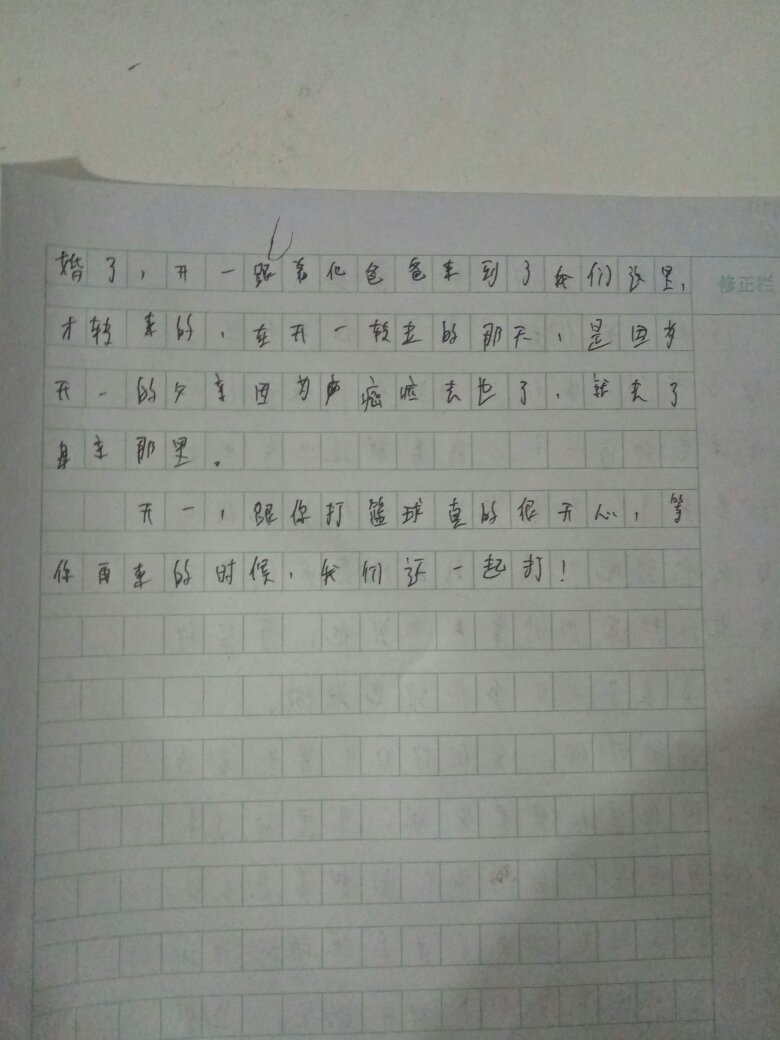 婚了，开一跟着他爸爸来到了我们这里，
修正栏
才转来的，在开一转走的那天，是因为
开一的父亲因为癌症去世了，就去了
母亲那里。
开一，跟你打篮球真的很开心，等
你再来的时候，我们还一起打！